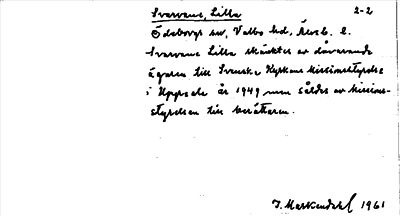 Svarvane, Lilla 2-2
Ödeborgs sn, Valbo hd, Älvsb. l.
Svarvane Lilla skänktes av dåvarande
ägaren till Svenska Kyrkans Missionsstyrelse
i Uppsala år 1949 men såldes av Missions-
styrelsen till berättaren.
J. Markendahl 1961